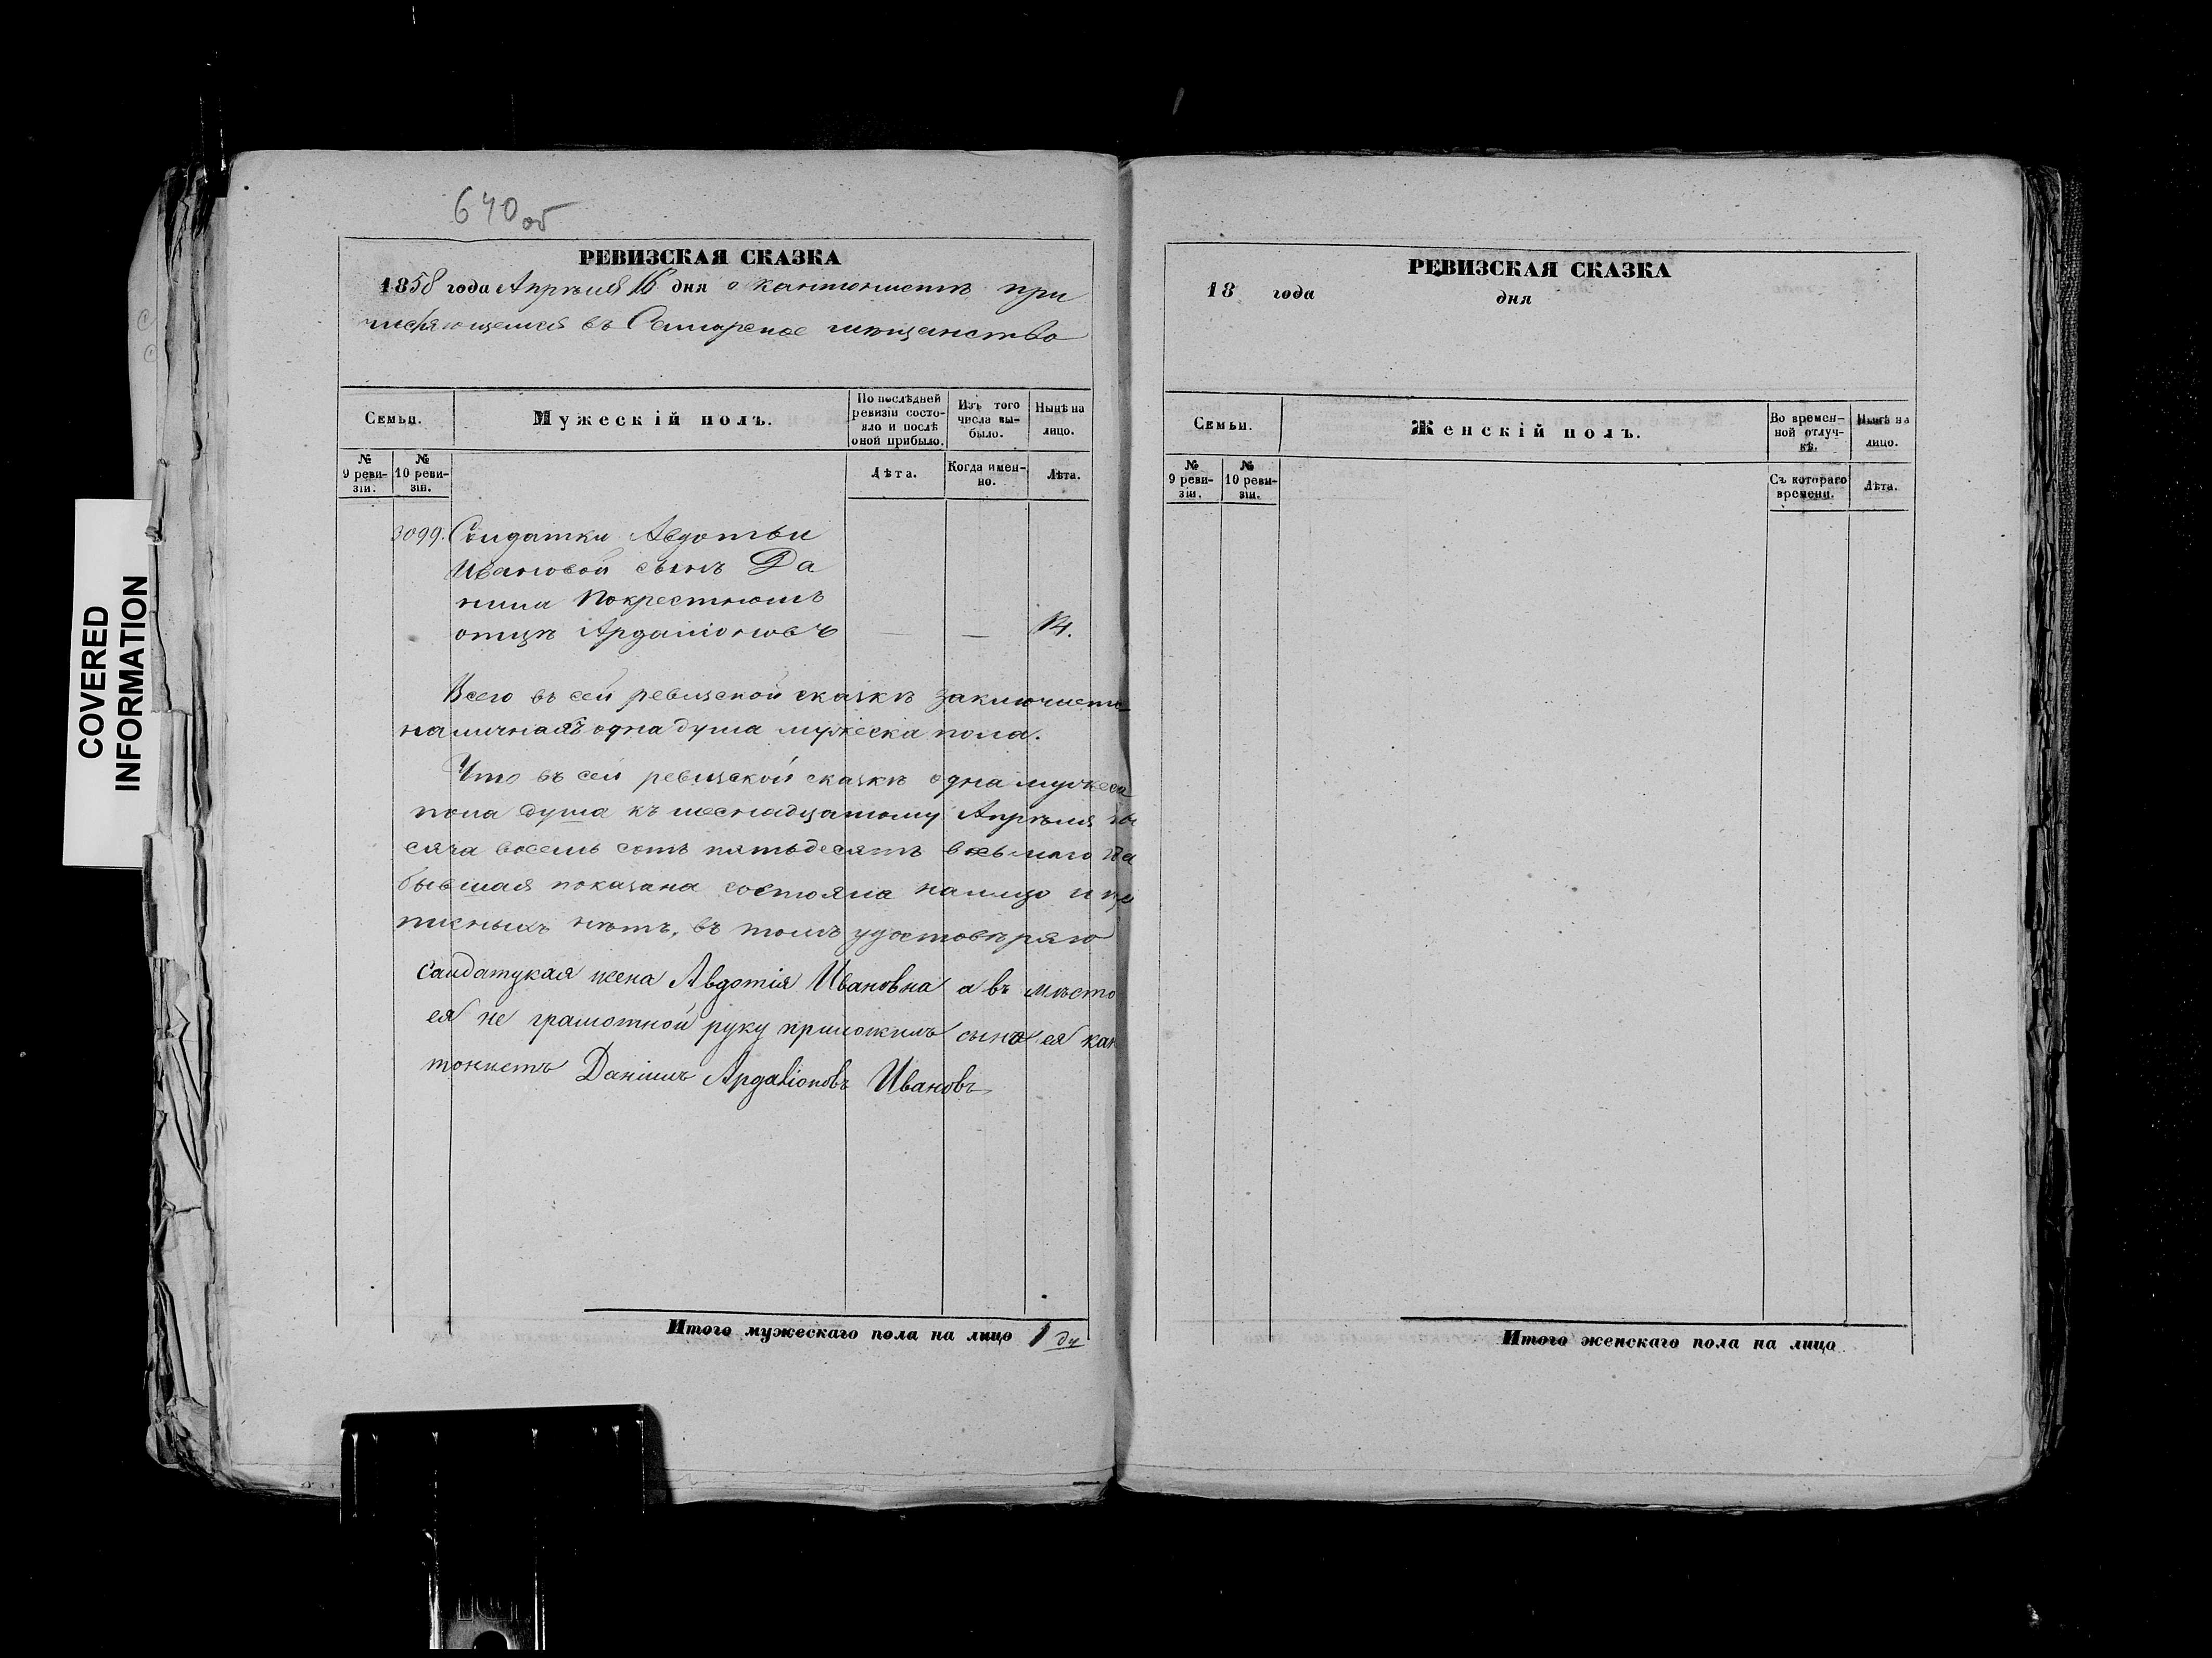 640 об
РЕВИЗСКАЯ СКАЗКА
1858 года Апрѣля 16 дня о кантонистѣ при
числяющемся въ Самарское мещанство
Семьи.
Мужескій полъ.
По послѣдней ревизіи состояло и послѣ оной прибыло.
Изъ того числа выбыло.
Нынѣ на лицо.
№ 9 ревизіи.
№ 10 ревизіи.
Лѣта.
Когда именно.
Лѣта.
3099. Салдатки Авдотьи
Ивановой сынъ Да
нила Покрестномъ
отцѣ Ардаліоновъ — — 14.
Всего въ сей ревизской сказкѣ заключаетъ
наличная одна душа мужеска пола.
Что въ сей ревизской сказкѣ одна мужеса
пола душа къ шеснадцатому Апрѣля ты
сяча восемь сотъ пятьдесятъ восьмаго года
бывшая показана состояла налицо и про
писныхъ нѣтъ, въ томъ удостовѣряю
Салдатцкая жена Авдотія Ивановна а въ мѣсто
ея не грамотной руку приложилъ сынъ ея кан
тонистъ Даніилъ Ардаліоновъ Ивановъ
Итого мужескаго пола на лицо 1 ду
РЕВИЗСКАЯ СКАЗКА
18 года дня
Семьи.
Женскій полъ.
Во временной отлучкѣ.
Нынѣ на лицо.
№ 9 ревизіи.
№ 10 ревизіи.
Съ котораго времени.
Лѣта.
Итого женскаго пола на лицо
COVERED
INFORMATION